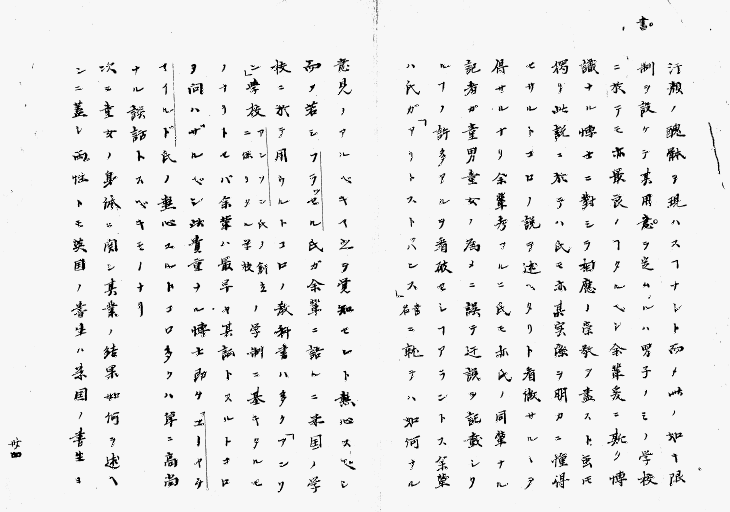 汗顔ノ醜躰ヲ現ハスフナシト而〆此ノ如キ限
制ヲ設ケテ其用意ヲ定ムルハ男子ノミノ学校
ニ於テモ亦最良ノフタルベシ余輩爰ニ斯ク博
識ナル博士ニ對シテ相應ノ崇敬ヲ盡スト虽モ
獨リ此説ニ於テハ氏モ亦其実際ヲ明カニ憧得
セサルトコロノ説ヲ述ヘタリト看做サルヽヲ
得サルナリ余輩考フルニ氏モ亦氏ノ同輩ナル
記者ガ童男童女ノ為メニ誤テ迂誤ヲ記載シタ
ルフノ許多アルヲ看破セシフアラントス余輩
ハ氏ガ「アリストパンス」書名ニ就テハ如何ナル
意見ノアルベキイ之ヲ覚知セント熱心スベシ
而〆若シフラッセル氏ガ余輩ニ語ルニ米国ノ学
校ニ於テ用ウルトコロノ教科書ハ多ク「ブンソ
ン」学校アンソン氏ノ創立ニ係リタル学校ノ学制ニ基キタルモ
ノナリトセバ余輩ハ最早ヤ其誤トスルトコロ
ヲ問ハザルベシ法貴重ナル博士即チエーヤラ
イイルド氏ノ熱心スルトコロ多クハ単ニ高尚
ナル誤話トスベキモノナリ
次ニ童女ノ身体ニ関シ其業ノ結果如何ヲ述ヘ
ンニ蓋シ両性トモ英国ノ書生ハ米国ノ書生ヨ
廿四